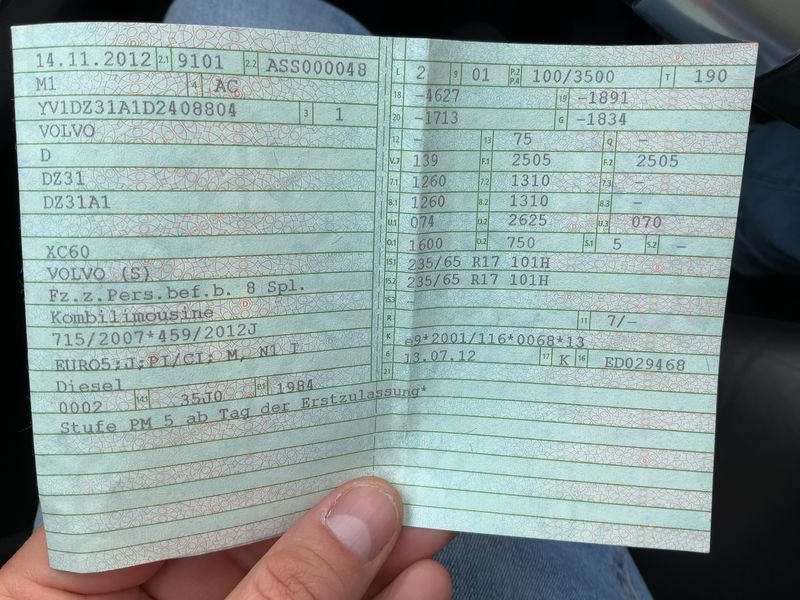 14.11.2012 2.1 9101 2.2 ASS000048
M1 4 AC
YV1DZ31A1D2408804 3 1
VOLVO
D
DZ31
DZ31A1
XC60
VOLVO (S)
Fz.z.Pers.bef.b. 8 Spl.
Kombilimousine
715/2007*459/2012J
EURO5;J;PI/CI; M, N1 I
Diesel
0002 14.1 35J0 P.1 1984
Stufe PM 5 ab Tag der Erstzulassung*
L 2 9 01 P.2 P.4 100/3500 T 190
18 -4627 19 -1891
20 -1713 G -1834
12 - 13 75 Q -
V.7 139 F.1 2505 F.2 2505
7.1 1260 7.2 1310 7.3 -
8.1 1260 8.2 1310 8.3 -
U.1 074 U.2 2625 U.3 070
O.1 1600 O.2 750 S.1 5 S.2 -
15.1 235/65 R17 101H
15.2 235/65 R17 101H
15.3 -
R 11 7/-
K e9*2001/116*0068*13
6 13.07.12 17 K 16 ED029468
21